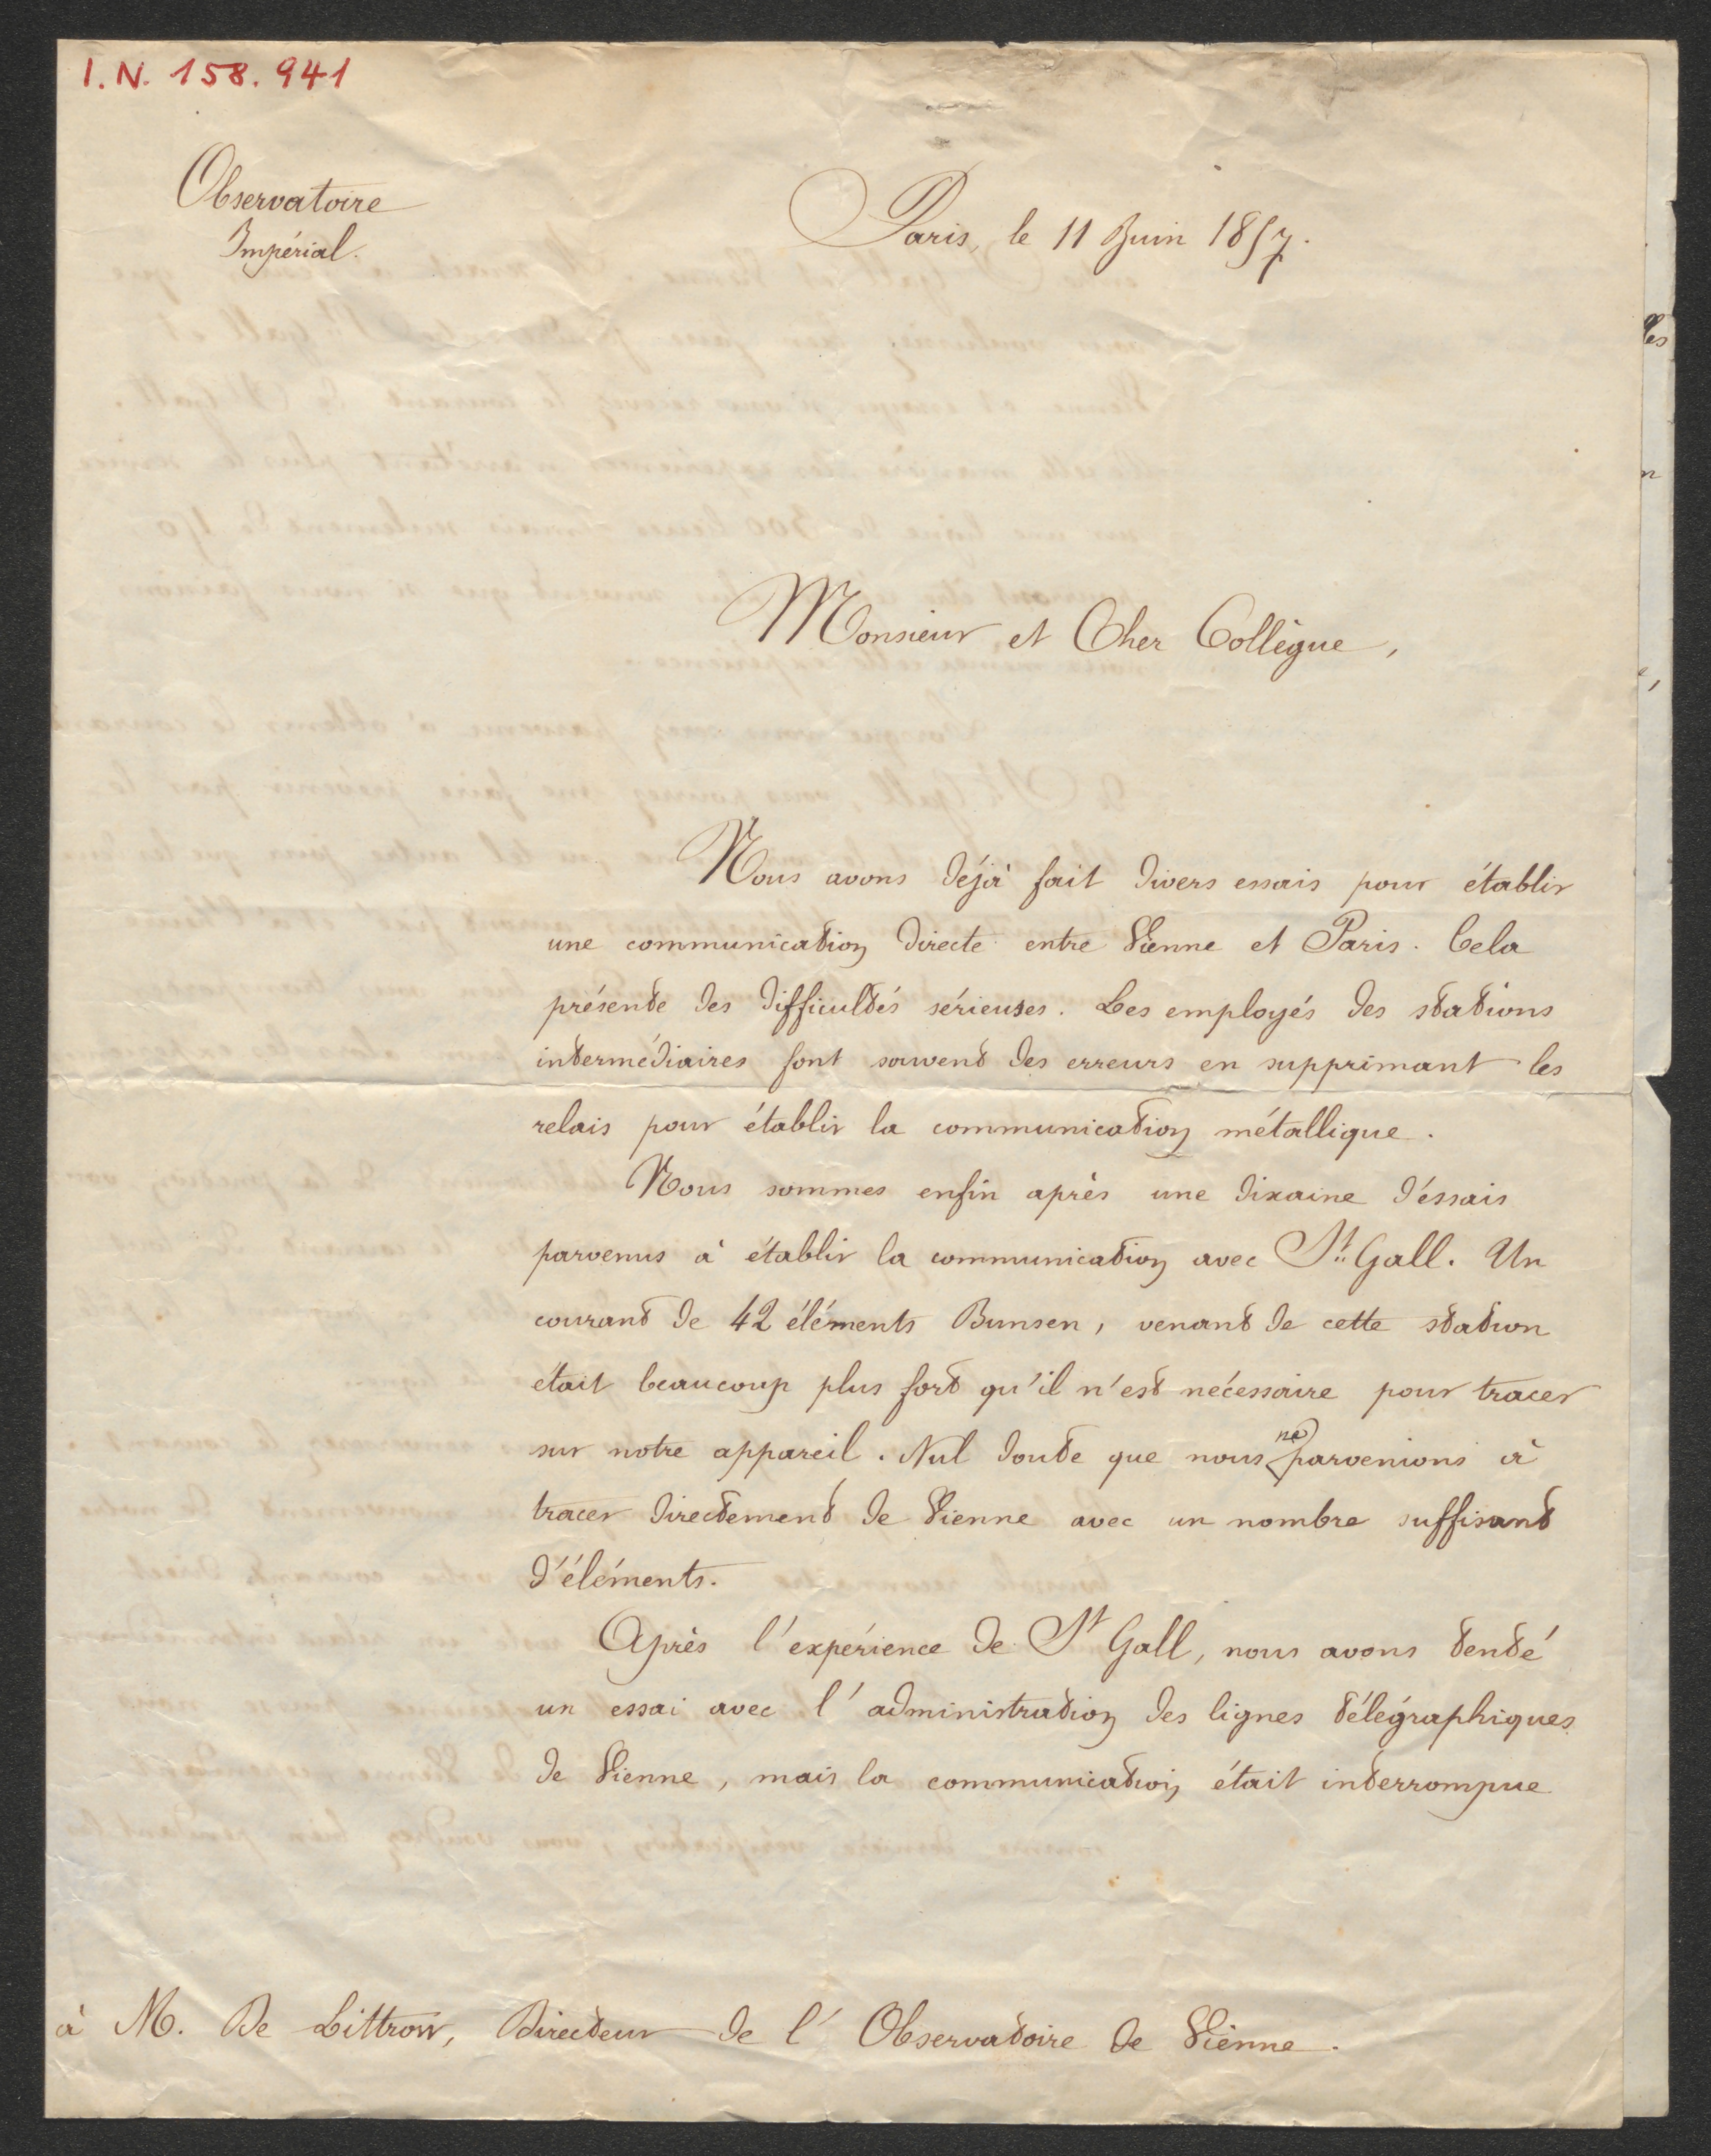 I.N. 158.941
Observatoire
Impérial.
Paris, le 11 Juin 1857.
Monsieur et Cher Collègue,
Nous avons déjà fait divers essais pour établir
une communication directe entre Vienne et Paris. Cela
présente des difficultés sérieuses. Les employés des stations
intermédiaires font souvent des erreurs en supprimant les
relais pour établir la communication métallique.
Nous sommes enfin après une dixaine d'éssais
parvenus à établir la communication avec St. Gall. Un
courant de 42 éléments Bunsen, venant de cette station
était beaucoup plus fort qu'il n'est nécessaire pour tracer
sur notre appareil. Nul doute que nous ne parvenions à
tracer directement de Vienne avec un nombre suffisant
d'éléments.
Après l'expérience de St Gall, nous avons tenté
un essai avec l'administration des lignes télégraphiques
de Vienne, mais la communication était interrompue
à M. De Littrow, Directeur de l'Observatoire de Vienne.